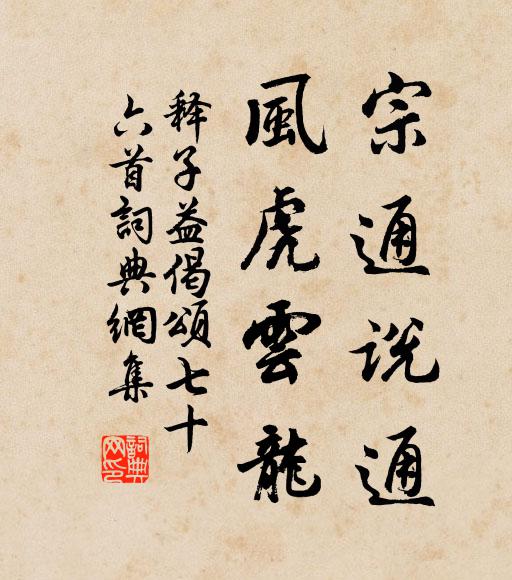 宗通说通
風虎雲龍
释子益偈頌七十
六首詞典網集
詞典网印